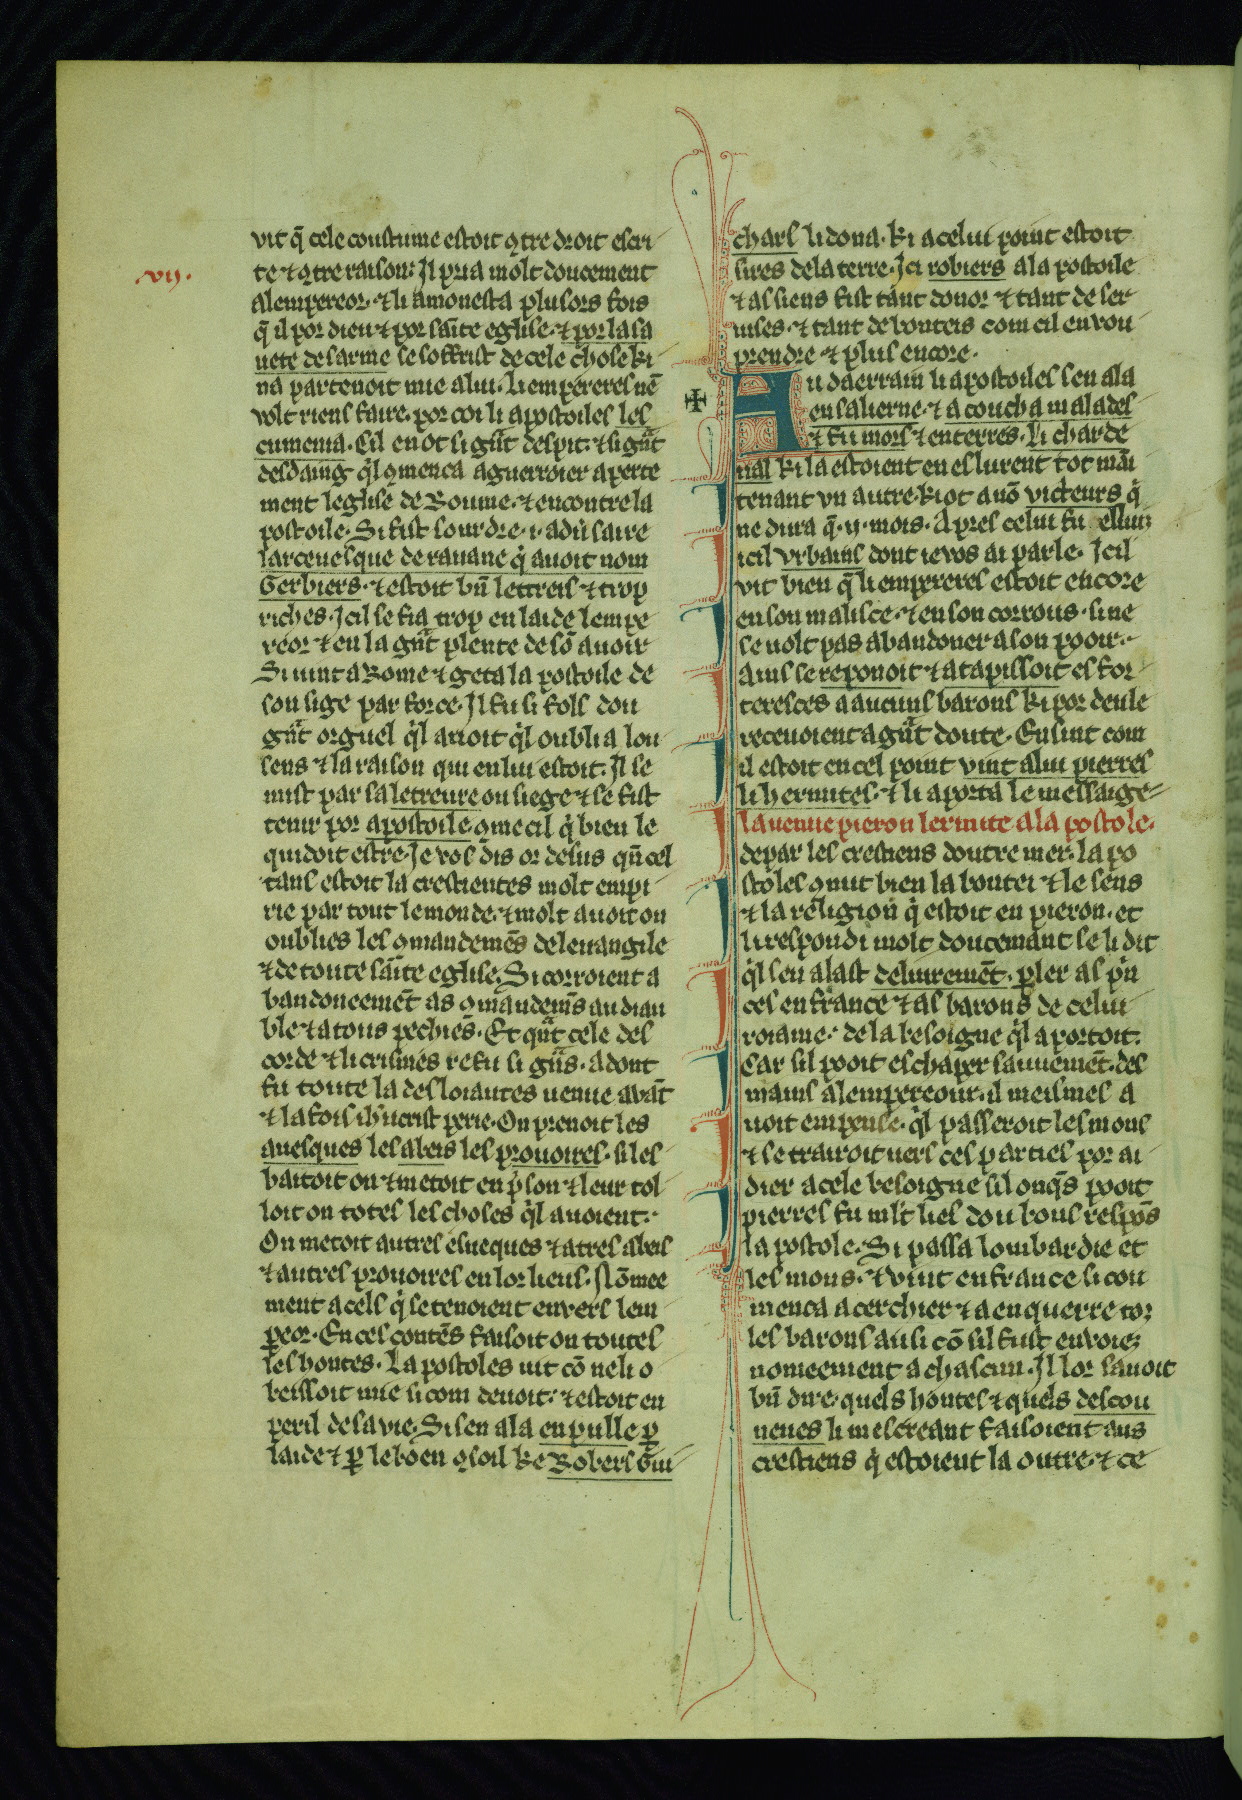 vij.
vit q̄ cele coustume estoit ꝯtre droit escri
te ⁊ ꝯtre raison: Il pͥa molt doucement
alempereor. ⁊ li amonesta plusors fois
q̄ il por dieu ⁊ por sāīte eglise. ⁊ por la sa
uete de sarme se soffrist de cele chose ki
na partenoit mie a lui. li empereres nē
volt riens faire. por coi li apostoiles les
cumenia. Cil en ot si gᵃ̄t despit. ⁊ si gᵃ̄t
desdaing qͥl ꝯmenca a guerroier aperte
ment leglise de Roume. ⁊ encontre la
postoile. Si fist sourdre .i. adūsaire
larceuesque de rauane qͥ auoit nom
Gerbiers. ⁊ estoit bn̄ lettreis ⁊ trop
riches. Icil se fia trop en laide lempe
reor ⁊ en la gᵃ̄t plente de sō auoir
Si uint a Rome ⁊ geta la postoile de
son sige par force. Il fu si fols dou
gᵃ̄t orguel qͥl auoit qͥl oublia lou
sens ⁊ la raison qui en lui estoit. Il se
mist par sa letreure ou siege ⁊ se fist
tenir por apostoile. ꝯme cil qͥ bien le
quidoit estre. Je vos dis or desus qn̄ cel
tans estoit la crestientes molt empi
rie par tout le monde. ⁊ molt auoit on
oublies les ꝯmandemēs de leuangile
⁊ de toute sāīte eglise. Si corroient a
bandoneemēt as ꝯmandemīs au diau
ble ⁊ a tous pechies. Et qᵃ̄t cele des
corde ⁊ li crismes refu si gᵃ̄s. adont
fu toute la desloiautes uenue auāt
⁊ la fois ihūcrist perie. On prenoit les
auesques les abeis les prouoires. si les
batoit on ⁊ metoit en pͥson ⁊ leur tol
loit on totes les choses qͥl auoient.
On metoit autres esueques ⁊ atres abeis
⁊ autres prouoires en lor lieus. Nōmee
ment a cels qͥ se tenoient envers lem
ꝑeor. En ces contēs faisoit on toutes
les hontes. La postoles uit cō ne li o
beissoit mie si com deuoit. ⁊ estoit en
peril de sa vie. Si sen ala en pulle ꝑ
laide ⁊ ꝑ le boen ꝯsoil ke Robers Gui
charſ li dona. ki a celui point estoit
sires de la terre. Ici robiers a la postoile
⁊ as siens fist tant donor ⁊ tant de ser
uises. ⁊ tant de bonteis com cil en vou
prendre ⁊ plus encore.
Au daerrain li apostoiles sen ala
en salierne. ⁊ a coucha malades
⁊ fu mors ⁊ enterres. Li charde
nal ki la estoient en eslurent tot māī
tenant vn autre. kiot a nō victeurs qͥ
ne dura q̄ .ij. mois. Apres celui fu ellius
icil vrbains dont ie vos ai parle. Icil
vit bien q̄ li empereres estoit encore
en son malisce. ⁊ en son corrous. si ne
se uolt pas abandoner a son pooir.
Ains se reponoit ⁊ atapissoit es for
teresces a aucuns barons ki por deu le
receuoient a gᵃ̄t doute. Ensint com
il estoit en cel point vint a lui pierres
li hermites. ⁊ li aporta le messaige
la uenue pieron lermite a la postole.
de par les crestiens doutre mer. la po
stoles ꝯnut bien la bontei ⁊ le sens
⁊ la religion qͥ estoit en pieron. et
li respondi molt doucemant se li dit
qͥl sen alast deliuremēt. ꝑler as pͥn
ces en france ⁊ as barons de celui
roiame. de la besoigne qͥl aportoit.
Car sil pooit eschaper sauuemēt. des
mains a lempereour. il meismes a
uoit empense. qͥl passeroit les mons
⁊ se trairoit uers ces parties por ai
dier a cele besoigne sil onqͣs pooit
pierres fu mlt lies dou bons respōs
la postole. Si passa lombardie et
les mons. ⁊ vint en france si con
menca a cerchier ⁊ a enquerre tor
les barons ausi cō sil fust envoies
nomeement a chascun. Il lor sauoit
bn̄ dire. quels hontes ⁊ quels descou
uenes li mescreant faisoient aus
crestiens qͥ estoient la outre. ⁊ ce